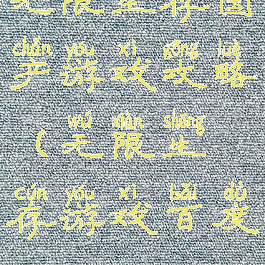 无限生存国
chǎn yóu xì gōng lüè
产游戏攻略
wú xiàn shēng
(无限生
cún yóu xì bǎi dù
存游戏百度